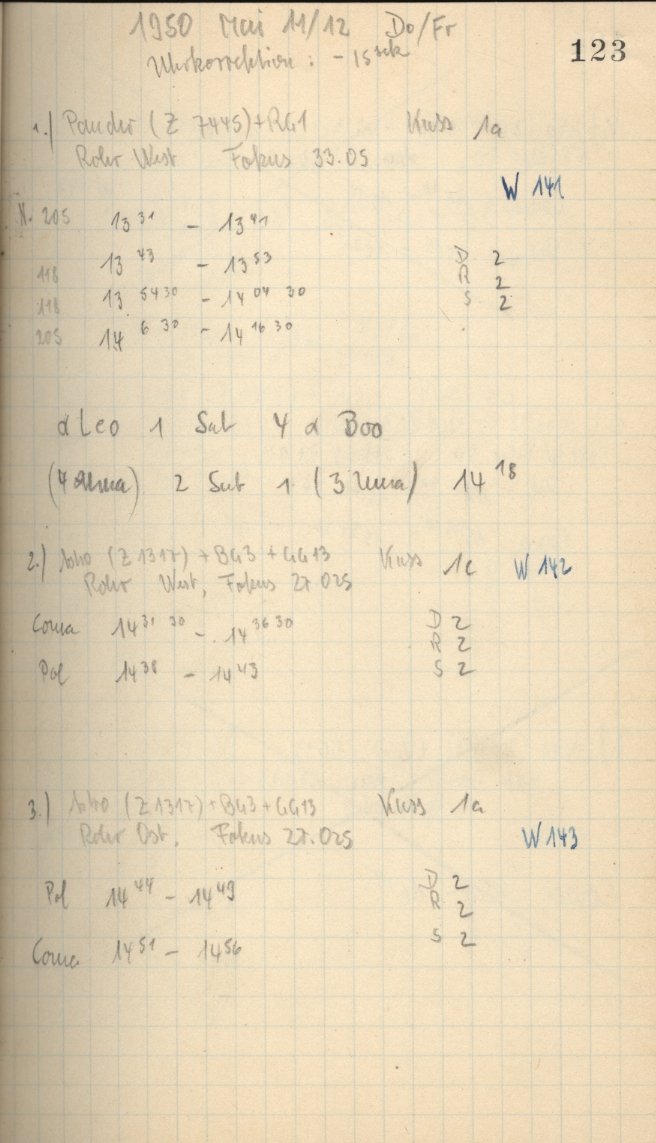 1950 Mai 11/12 Do/Fr
Uhrkorrektion: -15 sek
123
1.) Pancho (Z 7445)+RG1 Kass 1a
Rohr West Fokus 33.05
W 141
N. 205 13 31 - 13 41
118 13 43 - 13 53 D 2
R 2
118 13 54 30 - 14 04 30 S 2
205 14 6 30 - 14 16 30
α Leo 1 Sat 4 α Boo
2 Sat 1 14 18
2.) (Z 1317) + BG3 + GG13 Kass 1c W 142
Rohr West, Fokus 27.025
Coma 14 31 30 - 14 36 30 D 2
R 2
Pol 14 38 - 14 43 S 2
3.) (Z 1317) + BG3 + GG13 Kass 1a
Rohr Ost, Fokus 27.025 W 143
Pol 14 44 - 14 49 D 2
R 2
S 2
Coma 14 51 - 14 56